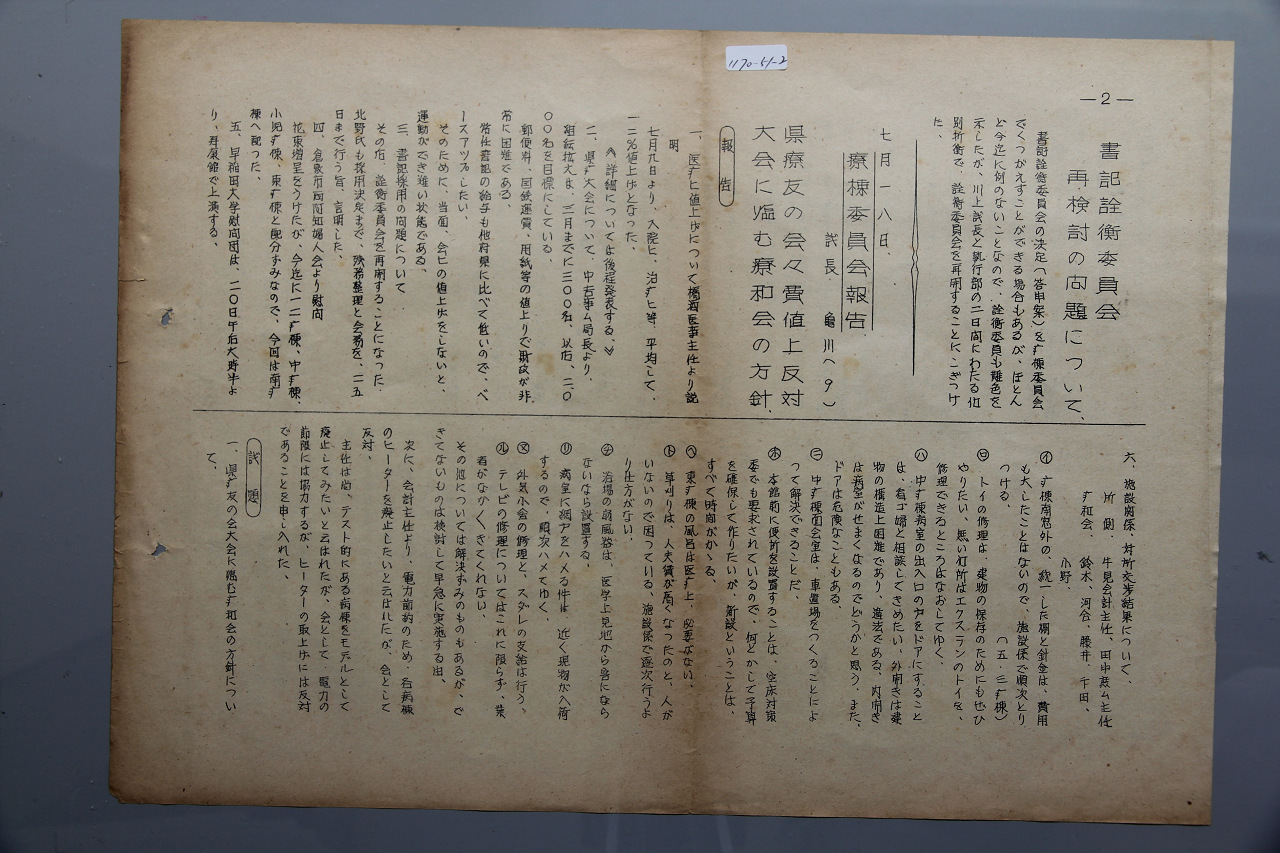 1170-51-2
―2―
書記詮衡委員会
再検討の問題について、
書記詮衡委員会の決定(答申案)を疒棟委員会
でくつがえすことができる場合もあるが、ほとん
ど今迄に例のないことなので、詮衡委員も難色を
示したが、川上議長と執行部の二日間にわたる個
別折衝で、詮衡委員会を再開することに、こぎつけ
た。
七月一八日、
療棟委員会報告
議長 亀川(9)
県療友の会々費値上反対
大会に臨む療和会の方針、
報告
一、医疒ヒ値上げについて 医事主任より説
明
七月九日より、入院ヒ、治疒ヒ等、平均して、
一二%値上げとなった。
《詳細については後程発表する、》
二、県疒大会について、中古事ム局長より、
組織拡大は、三月までに三〇〇名、以后、二、〇
〇〇名を目標にしている。
郵便料、国鉄運賃、用紙等の値上りで財政が非
常に困難である、
常任書記の給与も他府県に比べて低いので、ベ
ースアップしたい、
そのために、当面、会ヒの値上げをしないと、
運動ができ難い状態である、
三、書記採用の問題について
その后、詮衡委員会を再開することになった、
北野氏も採用決定まで、残務整理と会務を、二五
日まで行う旨、言明した、
四、倉敷市 婦人会より慰問
花束贈呈をうけたが、今迄に一二疒棟、中疒棟、
小児疒棟、東疒棟と配分ずみなので、今回は南疒
棟へ配った、
五、早稲田大学慰問団は、二〇日午后六時半よ
り、 館で上演する、
六、施設関係、対所交渉結果について、
所側、牛見会計主任、田中庶ム主任
疒和会、鈴木、河合、藤井、千田、
小野、
㋑ 疒棟南窓外の、統一した棚と針金は、費用
も大したことはないので、施設係で順次とり
つける、(一五・三疒棟)
㋺ トイの修理は、建物の保存のためにもぜひ
やりたい、悪い個所はエクスランのトイを、
修理できるところはなおしてゆく、
㋩ 中疒棟病室の出入口の戸をドアにすること
は、看ゴ婦と相談してきめたい、外開きは建
物の構造上困難であり、違法である、内開き
は病室がせまくなるのでどうかと思う、また、
ドアは危険なこともある、
㋥ 中疒棟面会室は、車置場をつくることによ
って解決できることだ、
㋭ 本館前に便所を設置することは、空床対策
委でも要求されているので、何とかして予算
を確保して作りたいが、新設ということは、
すべて時間がかゝる、
㋬ 東疒棟の風呂は医疒上、必要がない、
㋣ 草刈りは、人夫賃が高くなったのと、人が
いないので困っている、施設係で逐次行うよ
り仕方がない、
㋠ 浴場の扇風器は、医学上見地から害になら
ないなら設置する、
㋷ 病室に網戸をハメる件は、近く現物が入荷
するので、順次ハメてゆく、
㋦ 外気小舎の修理と、スダレの支給は行う、
㋸ テレビの修理についてはこれに限らず、業
者がなか〱きてくれない、
その他については解決ずみのものもあるが、で
きてないものは検討して早急に実施する由、
次に、会計主任より、電力節約のため、各病棟
のヒーターを廃止したいと云はれたが、会として
反対、
主任は尚、テスト的にある病棟をモデルとして
廃止してみたいと云はれたが、会として、電力の
節限には協力するが、ヒーターの取上げには反対
であることを申し入れた、
議題
一、県疒友の会大会に臨む疒和会の方針につい
て、